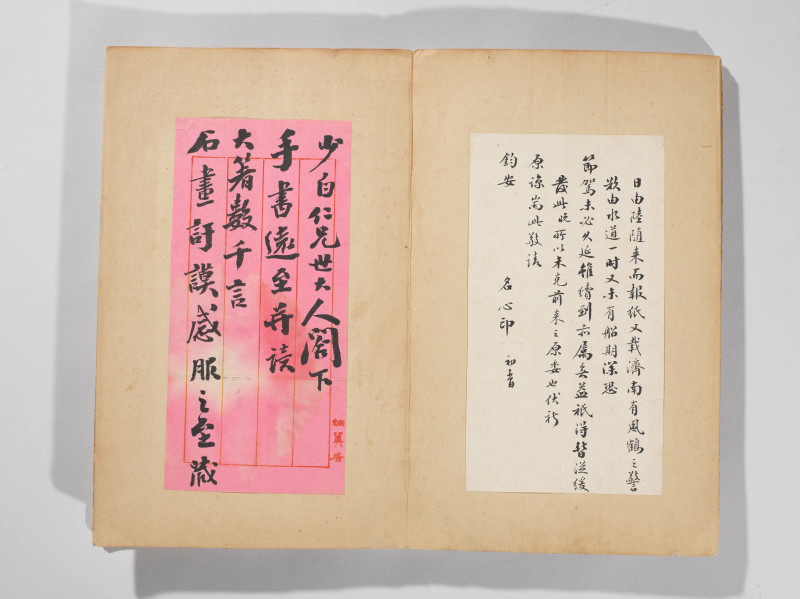 日由陸隨来而報紙又載濟南有風鶴之警
欵由水道一时又未有船期深恐
節駕未必久延雖續到亦属無益祇得暫從緩
發此晚所以未克前来之原委也伏祈
原諒耑此敬請
鈞安
名心印
少白仁兄世大人閣下
手書遠至并讀
大箸數千言
石畫訏謨感服之至